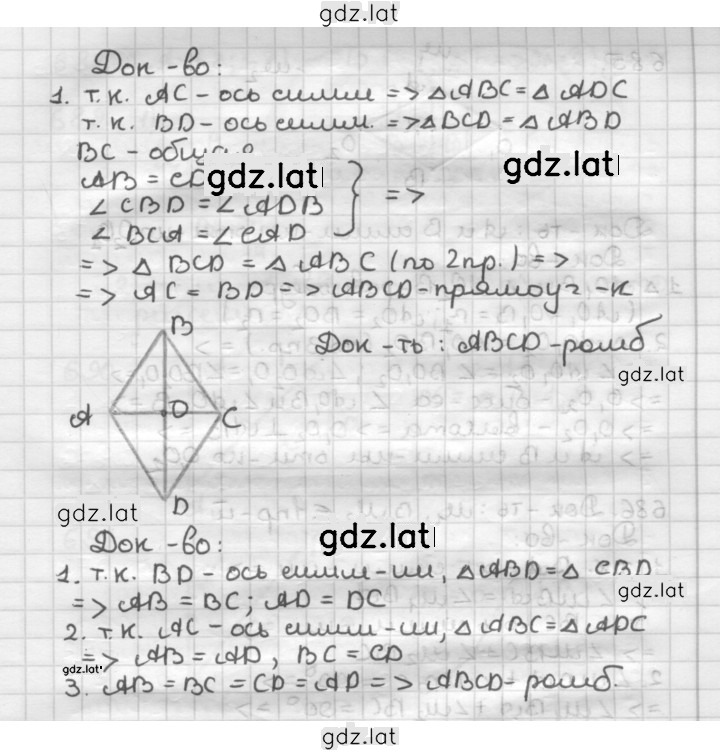 gdz.lat
Док-во:
1. т.к. AC - ось симм => △ABC = △ADC
т.к. BD - ось симм. => △BCD = △ABD
BC -
gdz.lat
AB =
gdz.lat
∠CBD = ∠ADB } =>
∠BCA = ∠CAD
=> △BCD = △ABC (по 2пр.) =>
=> AC = BD => ABCD - прямоуг-к
B
Док-ть: ABCD - ромб
gdz.lat
A O C
D
gdz.lat
Док-во:
gdz.lat
1. т.к. BD - ось симм-ии, △ABD = △CBD
gdz.lat
=> AB = BC; AD = DC
2. т.к. AC - ось симм-ии, △ABC = △ADC
=> AB = AD, BC = CD
gdz.lat
3. AB = BC = CD = AD => ABCD - ромб.
gdz.lat